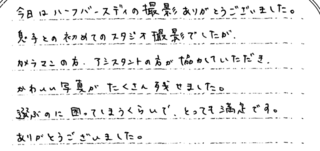 今日はハーフバースディの撮影ありがとうございました。
息子との初めてのスタジオ撮影でしたが、
カメラマンの方、アシスタントの方が協力していただき、
かわいい写真がたくさん残せました。
選ぶのに困ってしまうくらいで、とっても満足です。
ありがとうございました。